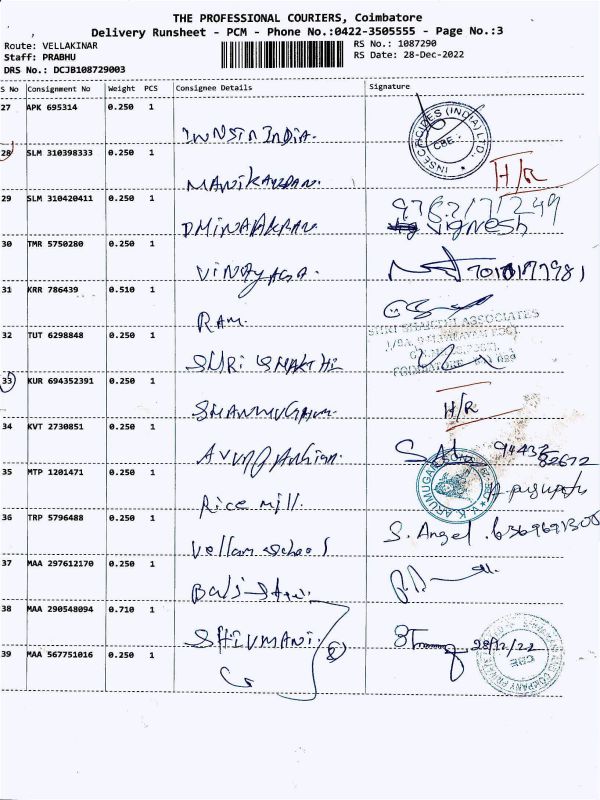 THE PROFESSIONAL COURIERS, Coimbatore
Delivery Runsheet - PCM - Phone No.:0422-3505555 - Page No.:3
Route: VELLAKINAR
RS No.: 1087290
Staff: PRABHU
RS Date: 28-Dec-2022
DRS No.: DCJB108729003
S No Consignment No Weight PCS Consignee Details Signature
27 APK 695314 0.250 1
INSECTICIDES (INDIA) LTD., CBE.
28 SLM 310398333 0.250 1
MANIKANDAN.
H/R
29 SLM 310420411 0.250 1
Vignesh
30 TMR 5750280 0.250 1
VINAYAGA.
31 KRR 786439 0.510 1
RAM.
SHRI SHAKTHI ASSOCIATES
32 TUT 6298848 0.250 1
SHRI SHAKTHI
COIMBATORE
33 KUR 694352391 0.250 1
SHANMUGAM.
H/R
34 KVT 2730851 0.250 1
35 MTP 1201471 0.250 1
Rice mill.
36 TRP 5796488 0.250 1
Vellam School
S. Angel. 6369691300
37 MAA 297612170 0.250 1
38 MAA 290548094 0.710 1
SHIVMANI.
2
28/12/22
CBE
39 MAA 567751016 0.250 1